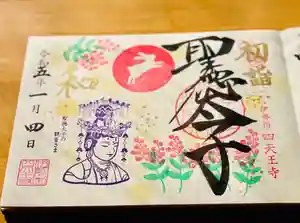 初詣
四天王寺
聖徳太子
和
令和五年一月四日